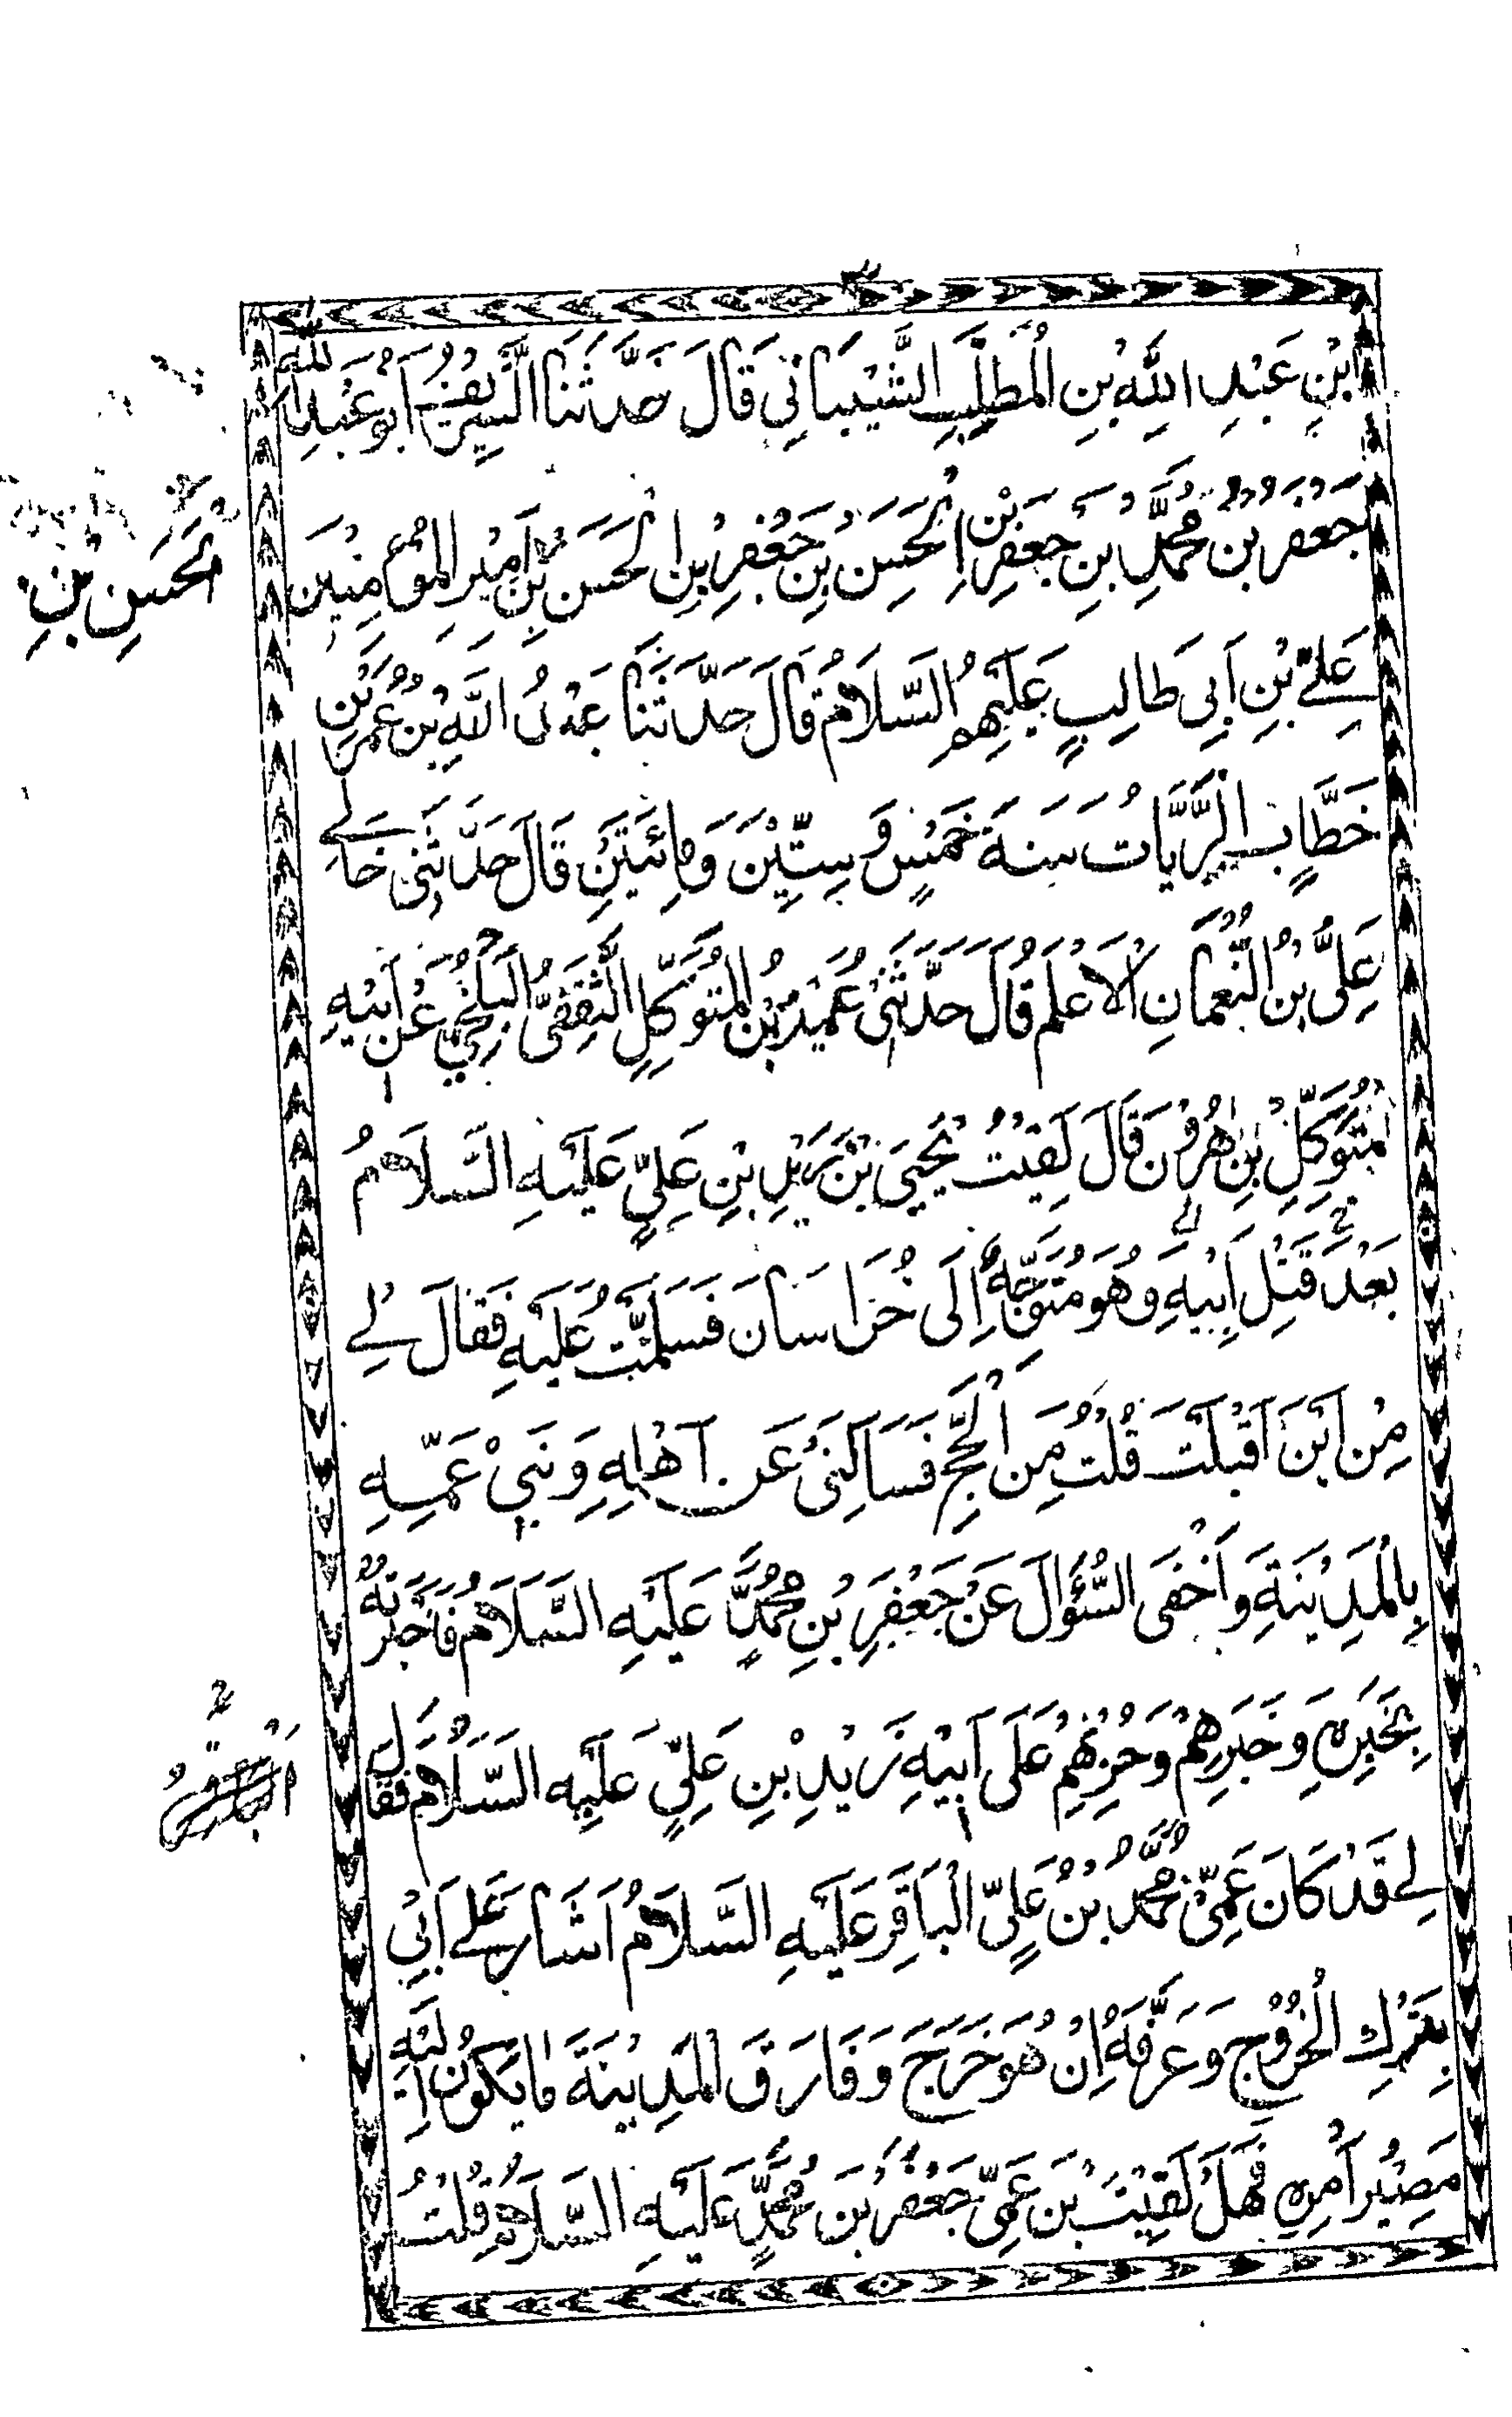 ابْنِ عَبْدِ اللّٰهِ بْنِ الْمُطَّلِبِ الشَّيْبَانِي قَالَ حَدَّثَنَا الشَّرِيفُ أَبُو عَبْدِ اللّٰهِ
جَعْفَرُ بْنُ مُحَمَّدِ بْنِ جَعْفَرِ بْنِ الْحَسَنِ بْنِ جَعْفَرِ بْنِ الْحَسَنِ بْنِ أَمِيْرِ الْمُؤْمِنِيْنَ
الْحَسَنِ بْنِ
عَلِيِّ بْنِ أَبِي طَالِبٍ عَلَيْهِمُ السَّلَامُ قَالَ حَدَّثَنَا عَبْدُ اللّٰهِ بْنُ عُمَرَ بْنِ
خَطَّابٍ الزَّيَّاتُ سَنَةَ خَمْسٍ وَسِتِّيْنَ وَمِائَتَيْنِ قَالَ حَدَّثَنِي خَالِي
عَلِيُّ بْنُ النُّعْمَانِ الْأَعْلَمُ قَالَ حَدَّثَنِي عُمَيْرُ بْنُ الْمُتَوَكِّلِ الثَّقَفِيُّ الْبَلْخِيُّ عَنْ أَبِيْهِ
مُتَوَكِّلِ بْنِ هٰرُوْنَ قَالَ لَقِيْتُ يَحْيَى بْنَ زَيْدِ بْنِ عَلِيٍّ عَلَيْهِ السَّلَامُ
بَعْدَ قَتْلِ أَبِيْهِ وَهُوَ مُتَوَجِّهٌ إِلَى خُرَاسَانَ فَسَلَّمْتُ عَلَيْهِ فَقَالَ لِي
مِنْ أَيْنَ أَقْبَلْتَ قُلْتُ مِنَ الْحَجِّ فَسَأَلَنِي عَنْ أَهْلِهِ وَبَنِيْ عَمِّهِ
بِالْمَدِيْنَةِ وَأَحْفَى السُّؤَالَ عَنْ جَعْفَرِ بْنِ مُحَمَّدٍ عَلَيْهِ السَّلَامُ فَأَخْبَرْتُهُ
بِخَبَرِهِ وَخَبَرِهِمْ وَحُزْنِهِمْ عَلَى أَبِيْهِ زَيْدِ بْنِ عَلِيٍّ عَلَيْهِ السَّلَامُ فَقَالَ
لِي قَدْ كَانَ عَمِّيْ مُحَمَّدُ بْنُ عَلِيٍّ الْبَاقِرُ عَلَيْهِ السَّلَامُ أَشَارَ عَلٰى أَبِيْ
بِتَرْكِ الْخُرُوْجِ وَعَرَّفَهُ إِنْ هُوَ خَرَجَ وَفَارَقَ الْمَدِيْنَةَ مَا يَكُوْنُ إِلَيْهِ
مَصِيْرُ أَمْرِهِ فَهَلْ لَقِيْتَ بْنَ عَمِّيْ جَعْفَرَ بْنَ مُحَمَّدٍ عَلَيْهِ السَّلَامُ قُلْتُ